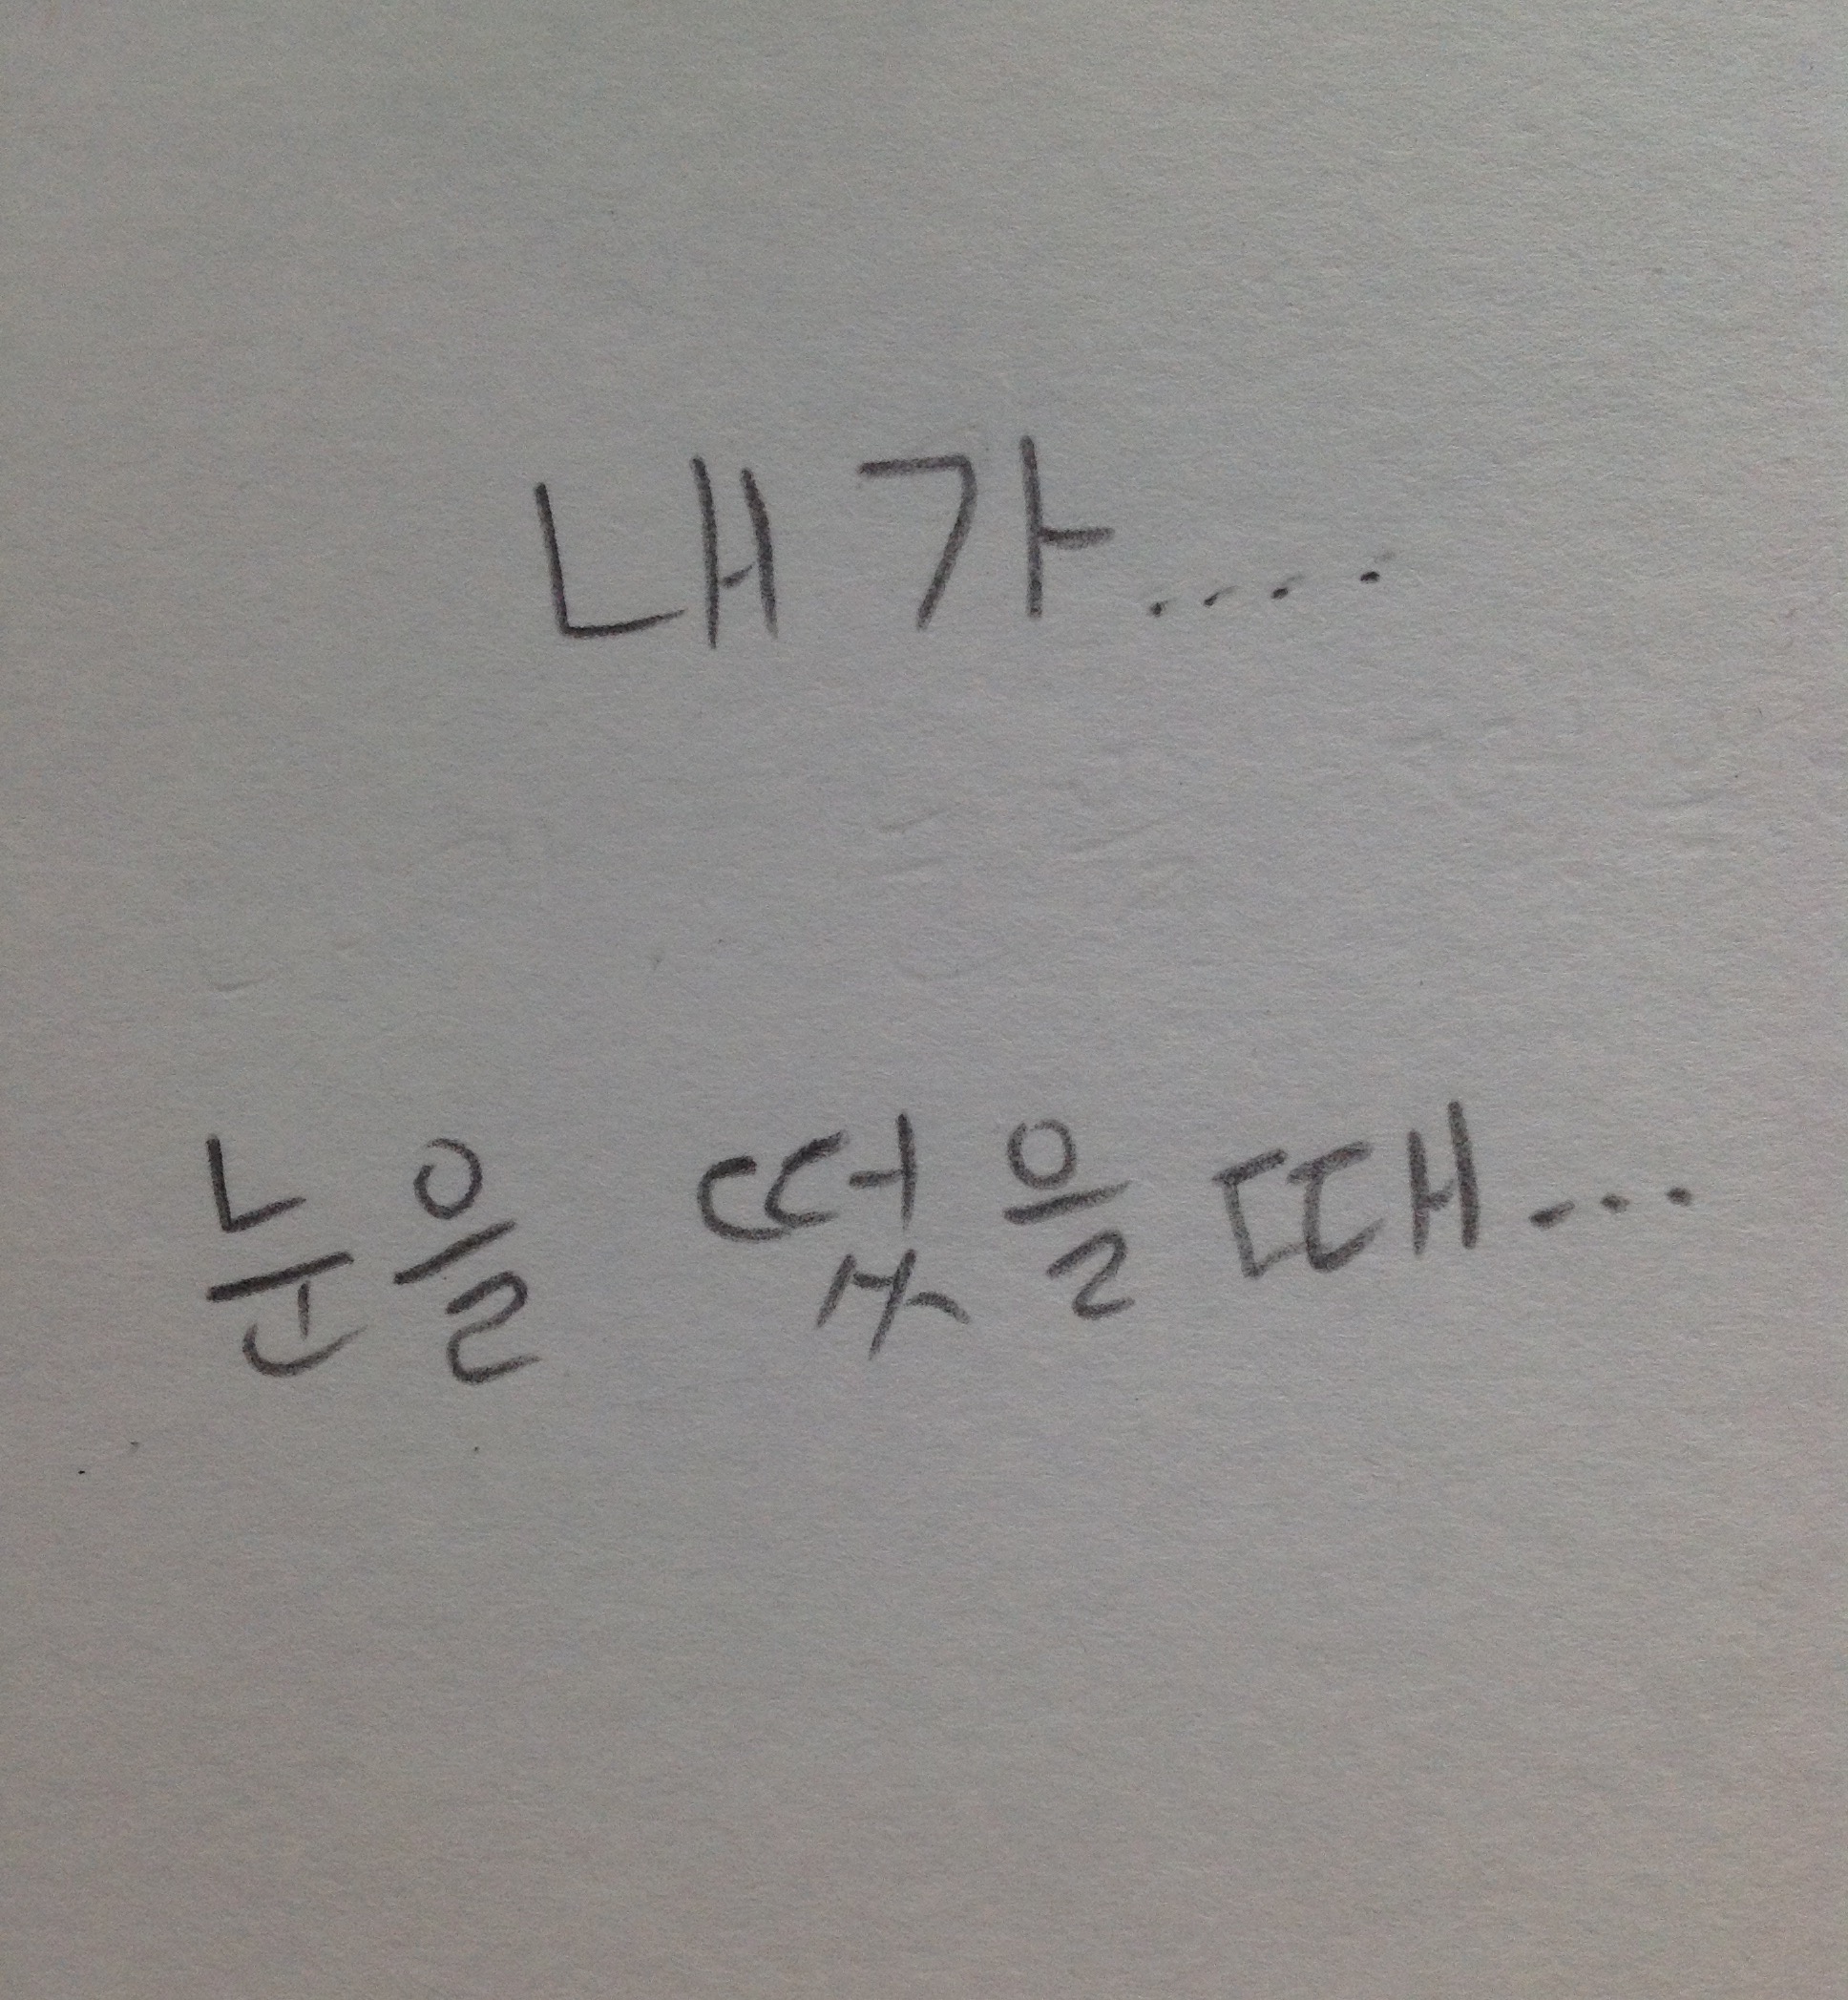 내가....
눈을 떴을때...